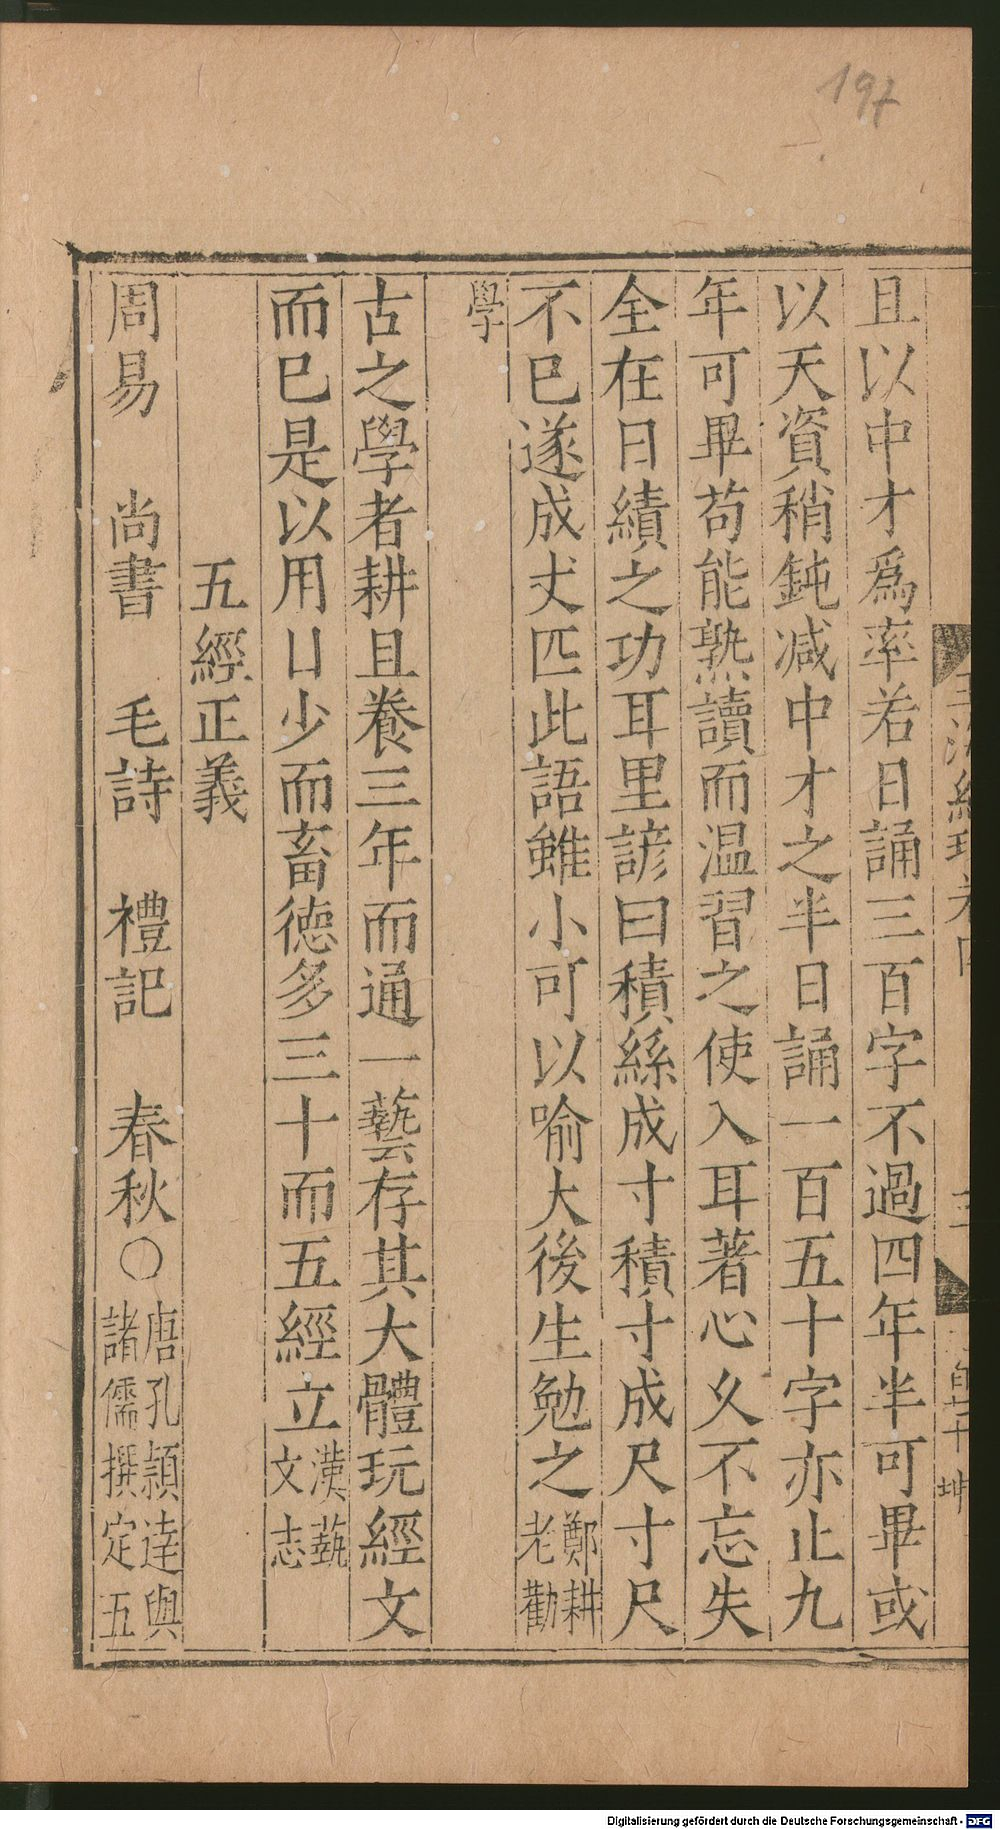 197
且以中才爲率若日誦三百字不過四年半可畢或
以天資稍鈍减中才之半日誦一百五十字亦止九
年可畢苟能熟讀而温習之使入耳著心久不忘失
全在日績之功耳里諺曰積絲成寸積寸成尺寸尺
不已遂成丈匹此語雖小可以喻大後生勉之鄭耕老勸
學
古之學者耕且養三年而通一藝存其大體玩經文
而已是以用日少而畜德多三十而五經立漢藝文志
五經正義
周易 尚書 毛詩 禮記 春秋○唐孔頴達與諸儒撰定五
Digitalisierung gefördert durch die Deutsche Forschungsgemeinschaft - DFG